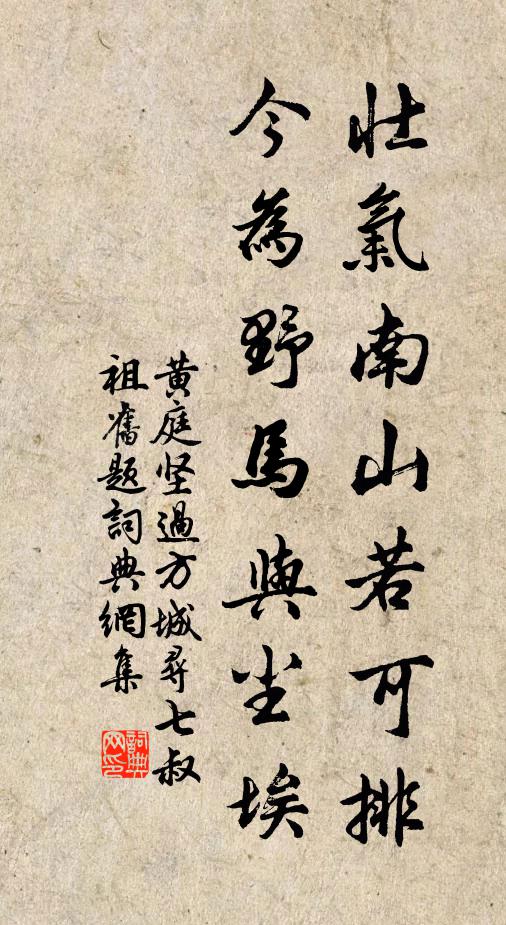 壮氣南山若可排
今為野馬與尘埃
黄庭坚過方城尋七叔
祖舊題詞典網集
詞典網印